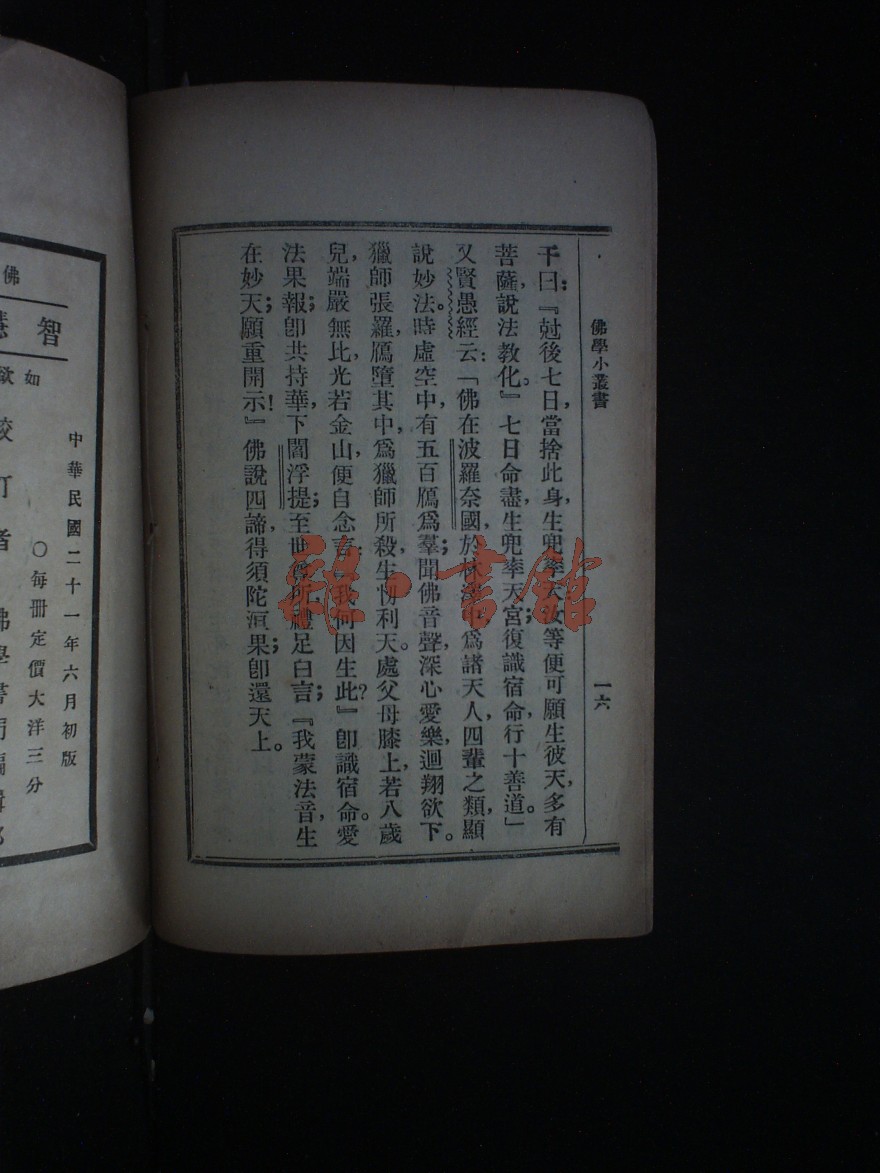 佛學小叢書
一六
干曰；『尅後七日，當捨此身，生兜率天，女等便可願生彼天，多有
菩薩，說法教化。』七日命盡，生兜率天宮；復識宿命，行十善道。」
又賢愚經云：「佛在波羅奈國，於林澤中，爲諸天人，四輩之類，顯
說妙法。時虛空中，有五百鴈爲羣；聞佛音聲，深心愛樂，迴翔欲下。
獵師張羅，鴈墮其中，爲獵師所殺，生忉利天。處父母膝上，若八歲
兒，端嚴無比，光若金山，便自念言：『我何因生此？』卽識宿命，愛
法果報；卽共持華，下閻浮提；至世尊所，禮足白言；『我蒙法音，生
在妙天；願重開示！』佛說四諦，得須陀洹果；卽還天上。
中華民國二十一年六月初版
○每冊定價大洋三分
佛
智慧
如
校訂者佛學書局編輯